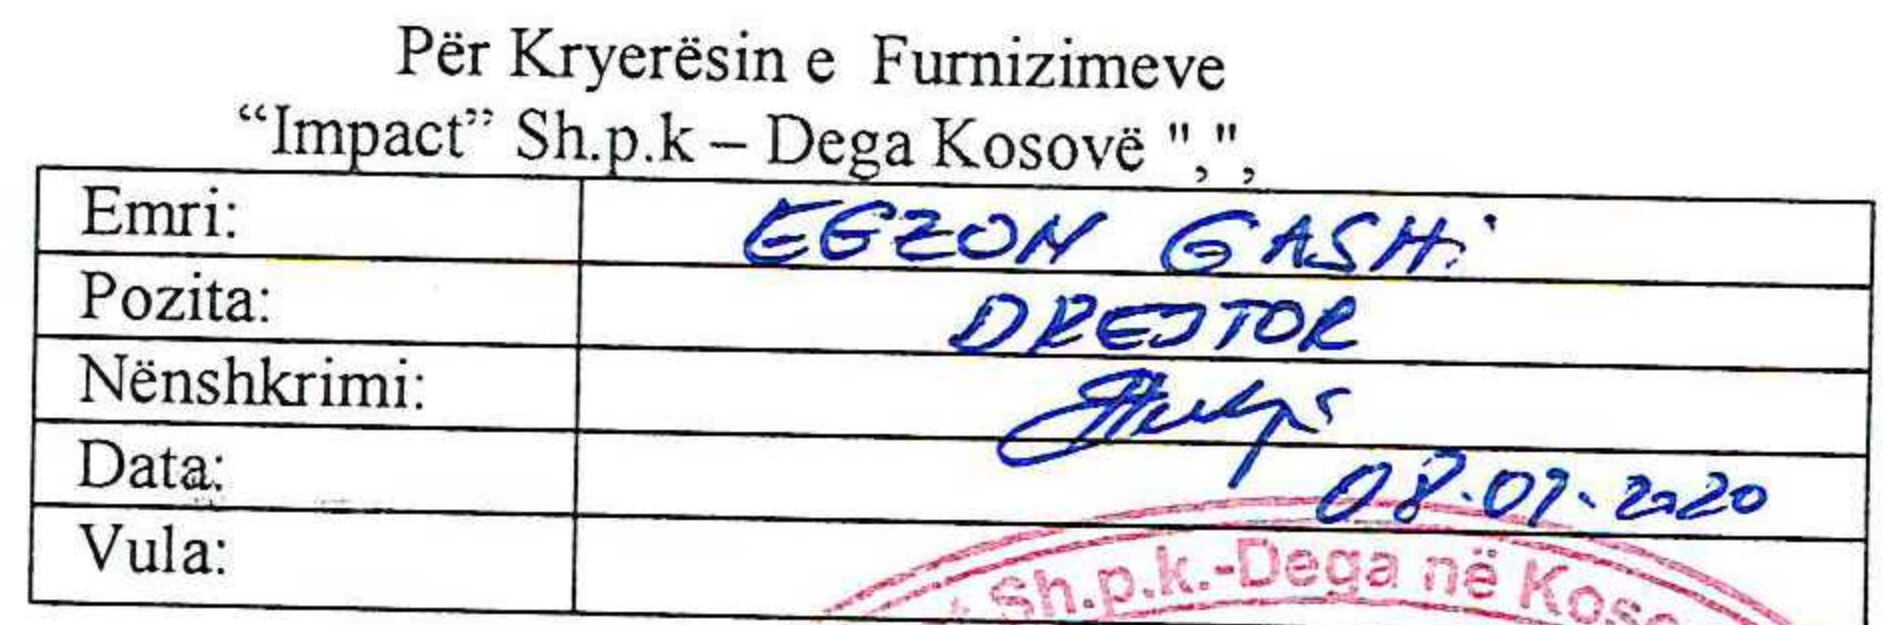 Për Kryerësin e Furnizimeve
“Impact” Sh.p.k – Dega Kosovë ",",
Emri: EGZON GASHi
Pozita: DREJTOR
Nënshkrimi:
Data: 08.07.2020
Vula:
Sh.p.k.-Dega në Koso